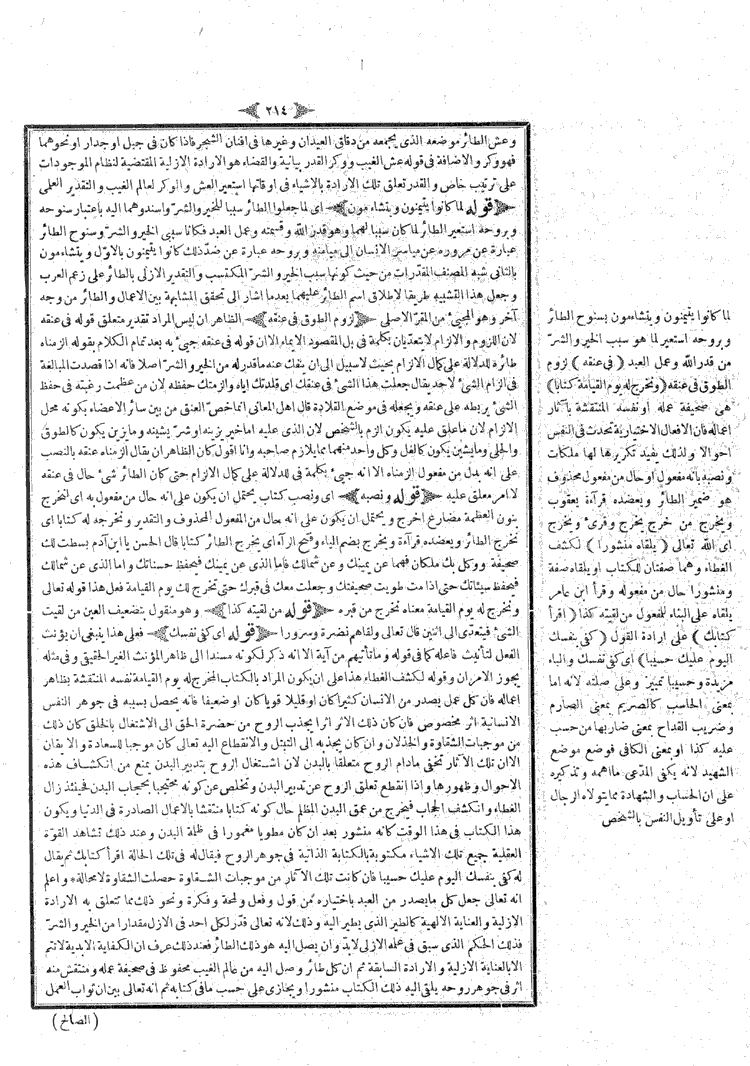 ﴿ ٢١٤ ﴾
وعش الطائر موضعه الذى يجمعه من دقاق العيدان وغيرها فى افنان الشجر فاذا كان فى جبل او جدار او نحوهما
فهو وكر والاضافة فى قوله عش الغيب ووكر القدر بيانية والقضاء هو الارادة الازلية المقتضية لنظام الموجودات
على ترتيب خاص والقدر تعلق تلك الارادة بالاشياء فى اوقاتها استعير العش والوكر لعالم الغيب والتقدير العلمى
﴿ قوله لما كانوا يتيمنون ويتشاءمون ﴾ اى لما جعلوا الطائر سببا للخير والشر واسندوهما اليه باعتبار سنوحه
وبروحه استعير الطائر لما كان سببا لهما وهو قدر الله وقسمته وعمل العبد فكانا سببى الخير والشر وسنوح الطائر
عبارة عن مروره عن مياسر الانسان الى ميامنه وبروحه عبارة عن ضد ذلك كانوا يتيمنون بالاول ويتشاءمون
بالثانى شبه المصنف المقدرات من حيث كونها سبب الخير والشر المكتسب والتقدير الازلى بالطائر على زعم العرب
وجعل هذا التشبيه طريقا لاطلاق اسم الطائر عليهما بعدما اشار الى تحقق المشابهة بين الاعمال والطائر من وجه
آخر وهو المجيئ من المقر الاصلى ﴿ لزوم الطوق فى عنقه ﴾ الظاهر ان ليس المراد تقدير متعلق قوله فى عنقه
لان اللزوم والالزام لا يتعديان بكلمة فى بل المقصود الايماء الا ان قوله فى عنقه جيئ به بعد تمام الكلام بقوله الزمناه
طائره للدلالة على كمال الالزام بحيث لاسبيل الى ان ينفك عنه ماقدر له من الخير والشر اصلا فانه اذا قصدت المبالغة
فى الزام الشئ لاحد يقال جعلت هذا الشئ فى عنقك اى قلدتك اياه والزمتك حفظه لان من عظمت رغبته فى حفظ
الشئ يربطه على عنقه ويجعله فى موضع القلادة قال اهل المعانى انما خص العنق من بين سائر الاعضاء بكونه محل
الالزام لان ماعلق عليه يكون الزم بالشخص لان الذى عليه اما خير يزينه او شر يشينه وما يزين يكون كالطوق
والحلى وما يشين يكون كالغل وكل واحد منهما مما يلازم صاحبه وانا اقول كان الظاهر ان يقال الزمناه عنقه بالنصب
على انه بدل من مفعول الزمناه الا انه جيئ بكلمة فى للدلالة على كمال الالزام حتى كان الطائر شئ حال فى عنقه
لا امر معلق عليه ﴿ قوله ونصبه ﴾ اى ونصب كتاب يحتمل ان يكون على انه حال من مفعول به اى لنخرج
بنون العظمة مضارع اخرج ويحتمل ان يكون على انه حال من المفعول المحذوف والتقدير ونخرجه له كتابا اى
نخرج الطائر ويعضده قرآءة ويخرج بضم الياء وفتح الرآء اى يخرج الطائر كتابا قال الحسن يا ابن آدم بسطت لك
صحيفة ووكل بك ملكان فهما عن يمينك وعن شمالك فاما الذى عن يمينك فيحفظ حسناتك واما الذى عن شمالك
فيحفظ سيئاتك حتى اذا مت طويت صحيفتك وجعلت معك فى قبرك حتى تخرج لك يوم القيامة فعل هذا قوله تعالى
ونخرج له يوم القيامة معناه نخرج من قبره ﴿ قوله من لقيته كذا ﴾ وهو منقول بتضعيف العين من لقيت
الشئ فيتعدى الى اثنين قال تعالى ولقاهم نضرة وسرورا ﴿ قوله اى كفى نفسك ﴾ فعلى هذا ينبغى ان يؤنث
الفعل لتأنيث فاعله كما فى قوله وما تأتيهم من آية الا انه ذكر لكونه مسندا الى ظاهر المؤنث الغير الحقيقى وفى مثله
يجوز الامران وقوله لكشف الغطاء هذا على ان يكون المراد بالكتاب المخرج له يوم القيامة نفسه المنتقشة بظاهر
اعماله فان كل عمل يصدر من الانسان كثيرا كان او قليلا قويا كان او ضعيفا فانه يحصل بسببه فى جوهر النفس
الانسانية اثر مخصوص فان كان ذلك الاثر اثرا يجذب الروح من حضرة الحق الى الاشتغال بالخلق كان ذلك
من موجبات الشقاوة والخذلان وان كان يجذبه الى التبتل والانقطاع اليه تعالى كان موجبا للسعادة والايقان
الا ان تلك الآثار تخفى مادام الروح متعلقا بالبدن لان اشتغال الروح بتدبير البدن يمنع من انكشاف هذه
الاحوال وظهورها واذا انقطع تعلق الروح عن تدبير البدن وتخلص عن كونه محتجبا بحجاب البدن فحينئذ زال
الغطاء وانكشف الحجاب فيخرج من عمق البدن المظلم حال كونه كتابا منتقشا بالاعمال الصادرة فى الدنيا ويكون
هذا الكتاب فى هذا الوقت كانه منشور بعد ان كان مطويا مغمورا فى ظلمة البدن وعند ذلك تشاهد القوة
العقلية جميع تلك الاشياء مكتوبة بالكتابة الذاتية فى جوهر الروح فيقال له فى تلك الحالة اقرأ كتابك ثم يقال
له كفى بنفسك اليوم عليك حسيبا فان كانت تلك الآثار من موجبات الشقاوة حصلت الشقاوة لامحالة * واعلم
انه تعالى جعل كل ما يصدر من العبد باختياره من قول وفعل ولمحة وفكرة ونحو ذلك مما تتعلق به الارادة
الازلية والعناية الالهية كالطير الذى يطير اليه وذلك لانه تعالى قدر لكل احد فى الازل مقدارا من الخير والشر
فذلك الحكم الذى سبق فى علمه الازلى لابد وان يصل اليه هو ذلك الطائر فعند ذلك عرف ان الكفاية الابدية لا تتم
الا بالعناية الازلية والارادة السابقة ثم ان كل طائر وصل اليه من عالم الغيب محفوظ فى صحيفة عمله ومنتقش منه
اثر فى جوهر روحه يلقى اليه ذلك الكتاب منشورا ويجازى على حسب ما فى كتابه ثم انه تعالى بين ان ثواب العمل
( الصالح )
لما كانوا يتيمنون ويتشاءمون بسنوح الطائر
وبروحه استعير لما هو سبب الخير والشر
من قدر الله وعمل العبد ( فى عنقه ) لزوم
الطوق فى عنقه ( ونخرج له يوم القيامة كتابا )
هى صحيفة عمله او نفسه المنتقشة بآثار
اعماله فان الافعال الاختيارية تحدث فى النفس
احوالا ولذلك يفيد تكريرها لها ملكات
ونصبه بانه مفعول او حال من مفعول محذوف
هو ضمير الطائر ويعضده قرآءة يعقوب
ويخرج من خرج يخرج وقرئ ويخرج
اى الله تعالى ( يلقاه منشورا ) لكشف
الغطاء وهما صفتان للكتاب او يلقاه صفة
ومنشورا حال من مفعوله وقرأ ابن عامر
يلقاه على البناء للمفعول من لقيته كذا ( اقرأ
كتابك ) على ارادة القول ( كفى بنفسك
اليوم عليك حسيبا ) اى كفى نفسك والباء
مزيدة وحسيبا تمييز وعلى صلته لانه اما
بمعنى الحاسب كالصريم بمعنى الصارم
وضريب القداح بمعنى ضاربها من حسب
عليه كذا او بمعنى الكافى فوضع موضع
الشهيد لانه يكفى المدعى ما اهمه وتذكيره
على ان الحساب والشهادة مما يتولاه الرجال
او على تأويل النفس بالشخص